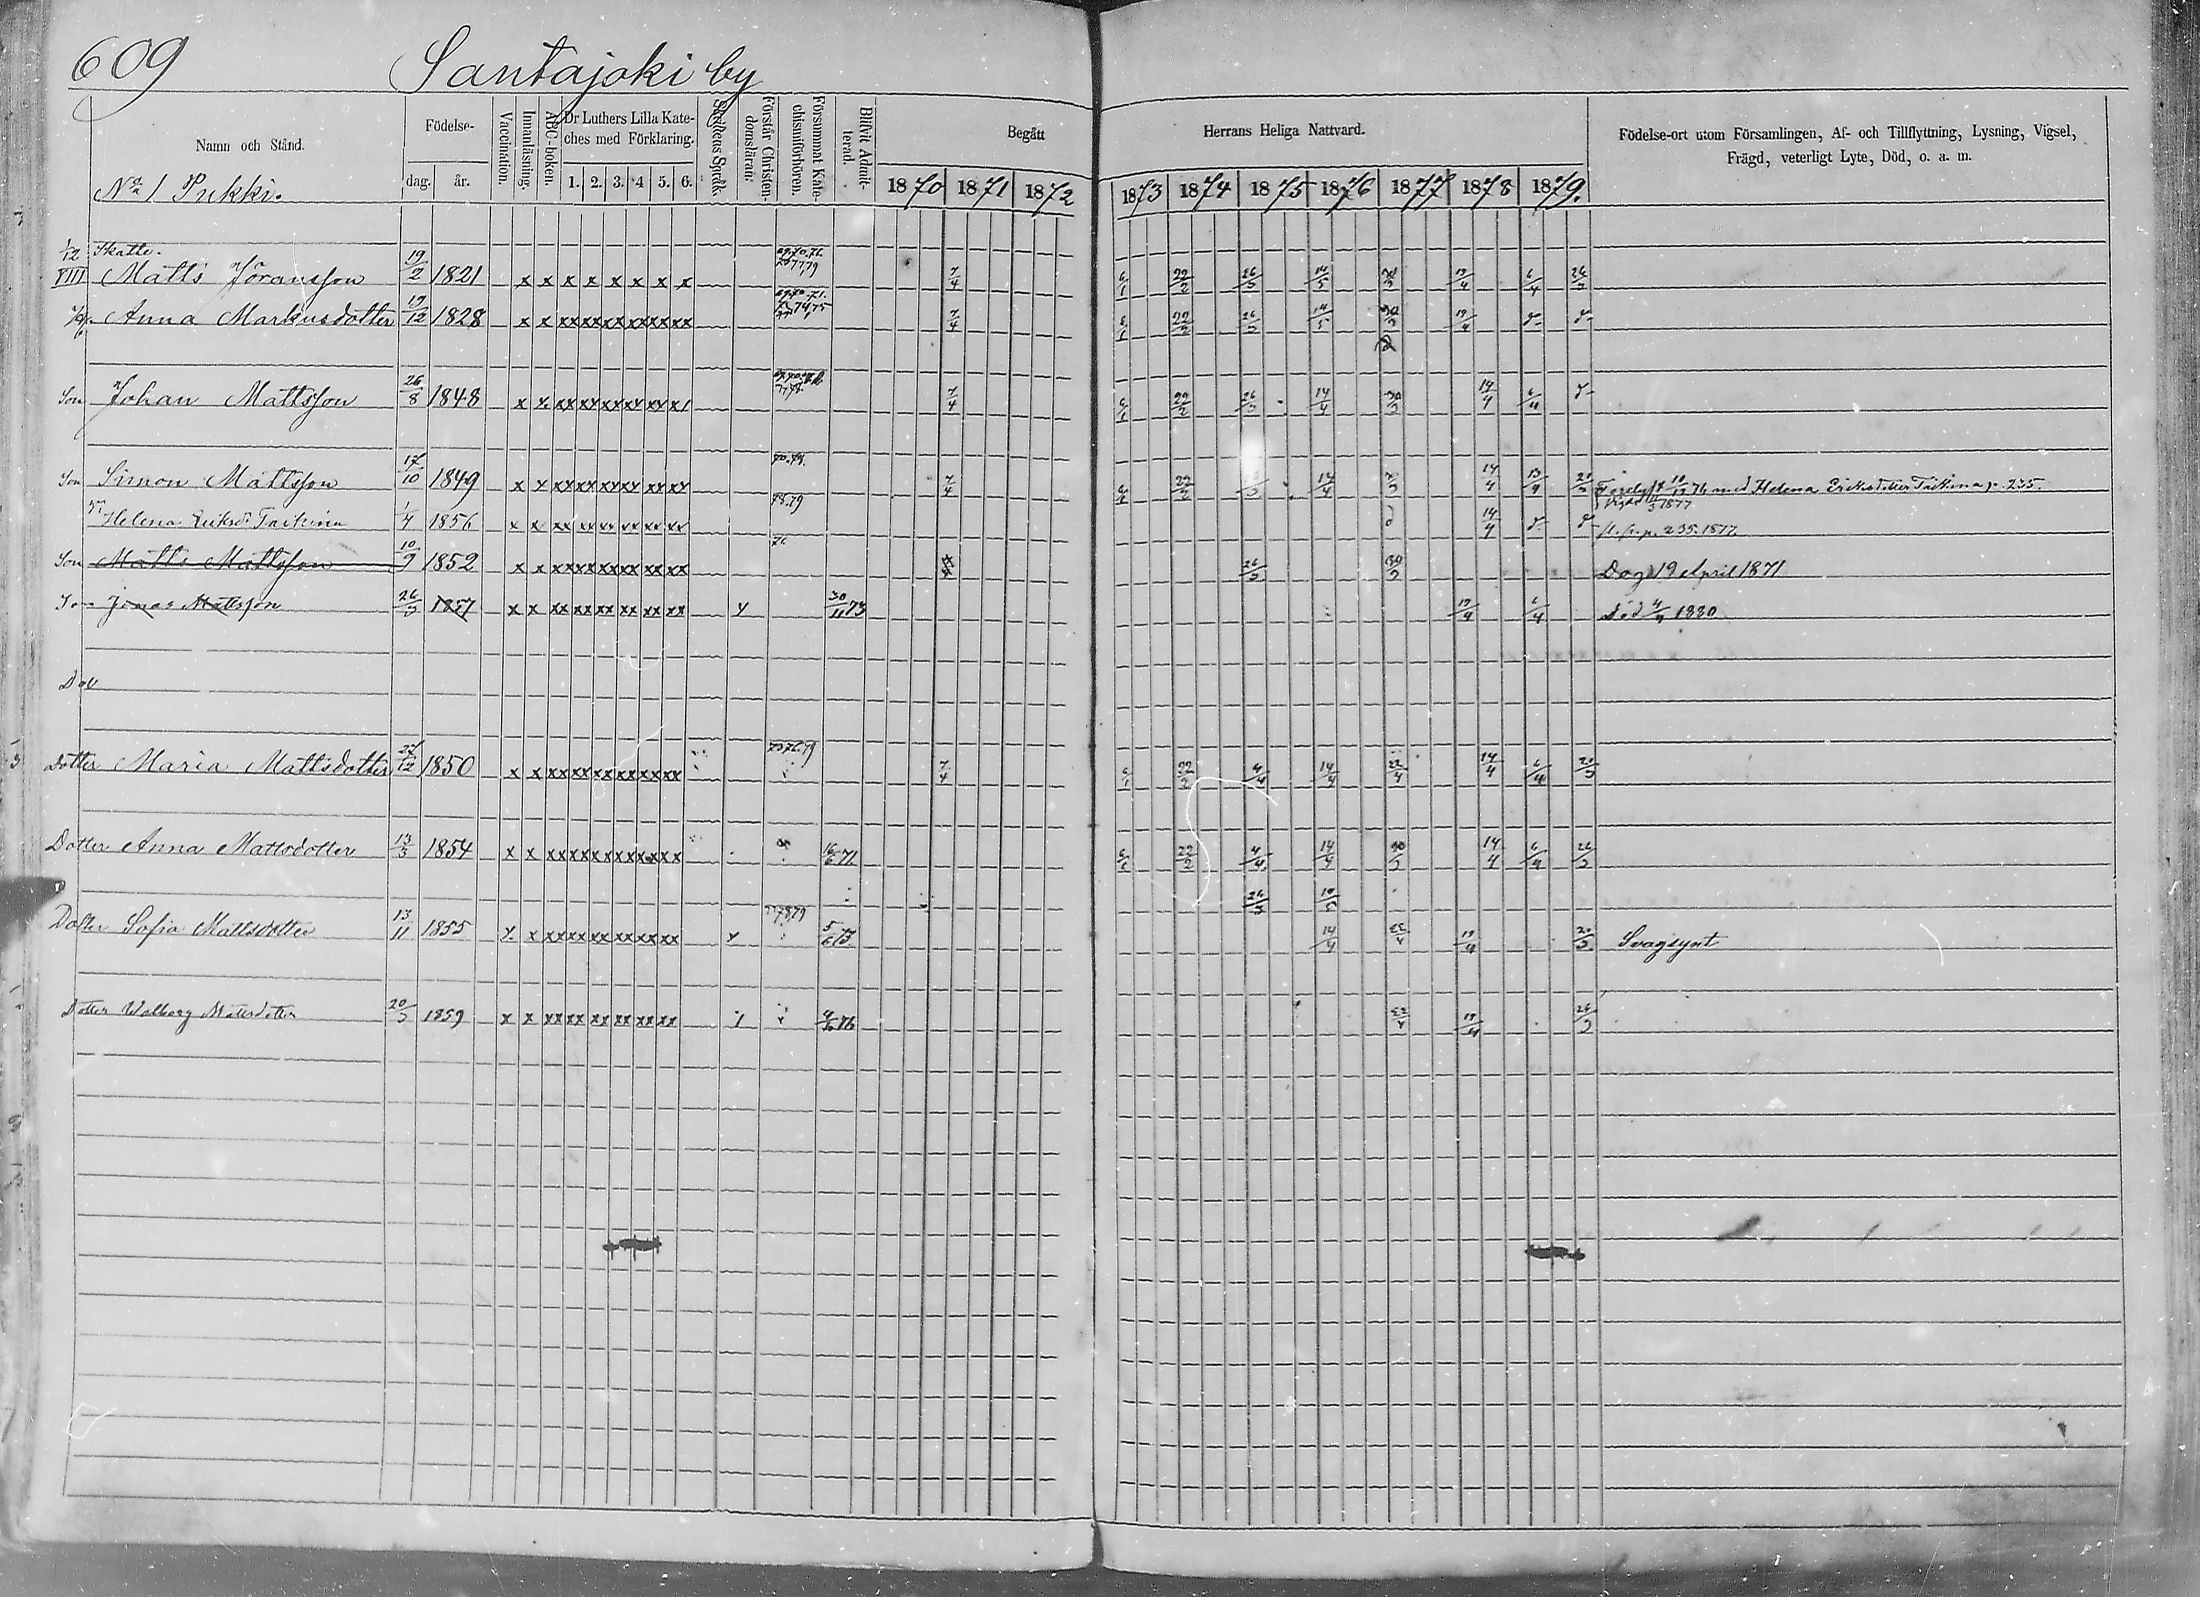 609 Santajoki by
Namn och Stånd. Födelse- dag. år. Vaccination. Innanläsning. ABC-boken. Dr Luthers Lilla Kateches med Förklaring. 1. 2. 3. 4 5. 6. Skriftens Språk. Förstår Christendomsläran: Försummat Katechismiförhören. Blifvit Admitterad. Begått Herrans Heliga Nattvard. Födelse-ort utom Församlingen, Af- och Tillflyttning, Lysning, Vigsel, Frägd, veterligt Lyte, Död, o. a. m.
No 1 Pukki. 1870 1871 1872 1873 1874 1875 1876 1877 1878 1879.
Skatte.
VIII Matts Jöransson 19/2 1821 x x x x x x x x 7/4 6/1 22/2 26/3 14/5 19/4 6/4 26/3
Anna Markusdotter 19/12 1828 x x xx xx xx xx xx xx 7/4 6/1 22/2 26/3 14/5 30/3 19/4
Son Johan Mattsson 26/8 1848 x x xx xx xx xx xx x 7/4 6/1 22/2 26/3 14/4 30/3 14/4 6/4
Son Simon Mattsson 17/10 1849 x x xx xx xx xx xx xx 70.79. 7/4 6/1 22/2 14/4 14/4 13/4 76 med Helena Eriksdotter Taikina p. 235.
1877
Helena Eriksd. Taikina 1/4 1856 x x xx xx xx xx xx xx 78.79 14/4 p. 235. 1877
Son Matts Mattsson 10/9 1852 x x xx xx xx xx xx xx 26/3 30/3 Dog 19 April 1871
Son Jonas Mattsson 26/3 1857 x x xx xx xx xx xx xx 30/11 73 19/4 6/4 Död 4/4 1880
Dot
Dotter Maria Mattsdotter 27/12 1850 x x xx xx xx xx xx xx 7/4 6/1 22/2 4/4 14/4 22/4 14/4 6/4 20/3
Dotter Anna Mattsdotter 13/3 1854 x x xx xx xx xx xx xx 16/6 71 6/1 22/2 4/4 14/4 30/3 14/4 6/4 26/3
26/3
Dotter Sofia Mattsdotter 13/11 1855 x x xx xx xx xx xx xx 7879 5/6 75 14/4 22/4 19/4 20/3 Svagsynt
Dotter Walborg Mattsdotter 20/3 1859 x x xx xx xx xx xx xx 4/6 76 22/4 19/4 26/3